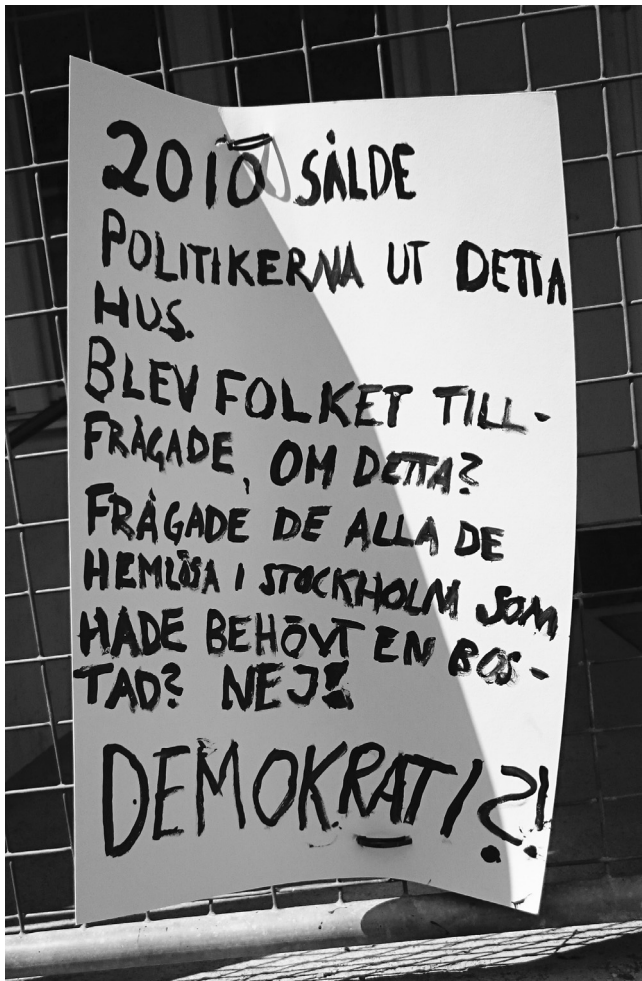 2010 SÅLDE
POLITIKERNA UT DETTA
HUS.
BLEV FOLKET TILL-
FRÅGADE, OM DETTA?
FRÅGADE DE ALLA DE
HEMLÖSA I STOCKHOLM SOM
HADE BEHÖVT EN BOS-
TAD? NEJ!
DEMOKRATI?!